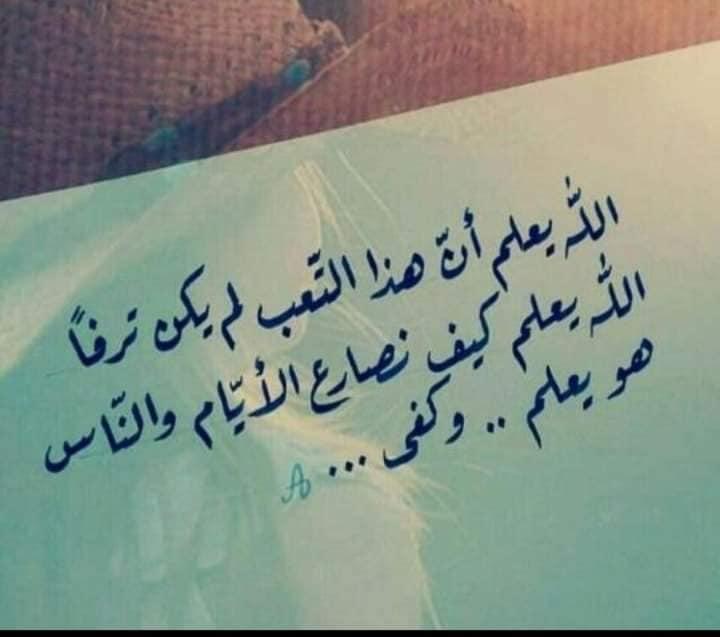 الله يعلم أنّ هذا التّعب لم يكن ترفاً
الله يعلم كيف نصارع الأيّام والنّاس
هو يعلم .. وكفى ...
A